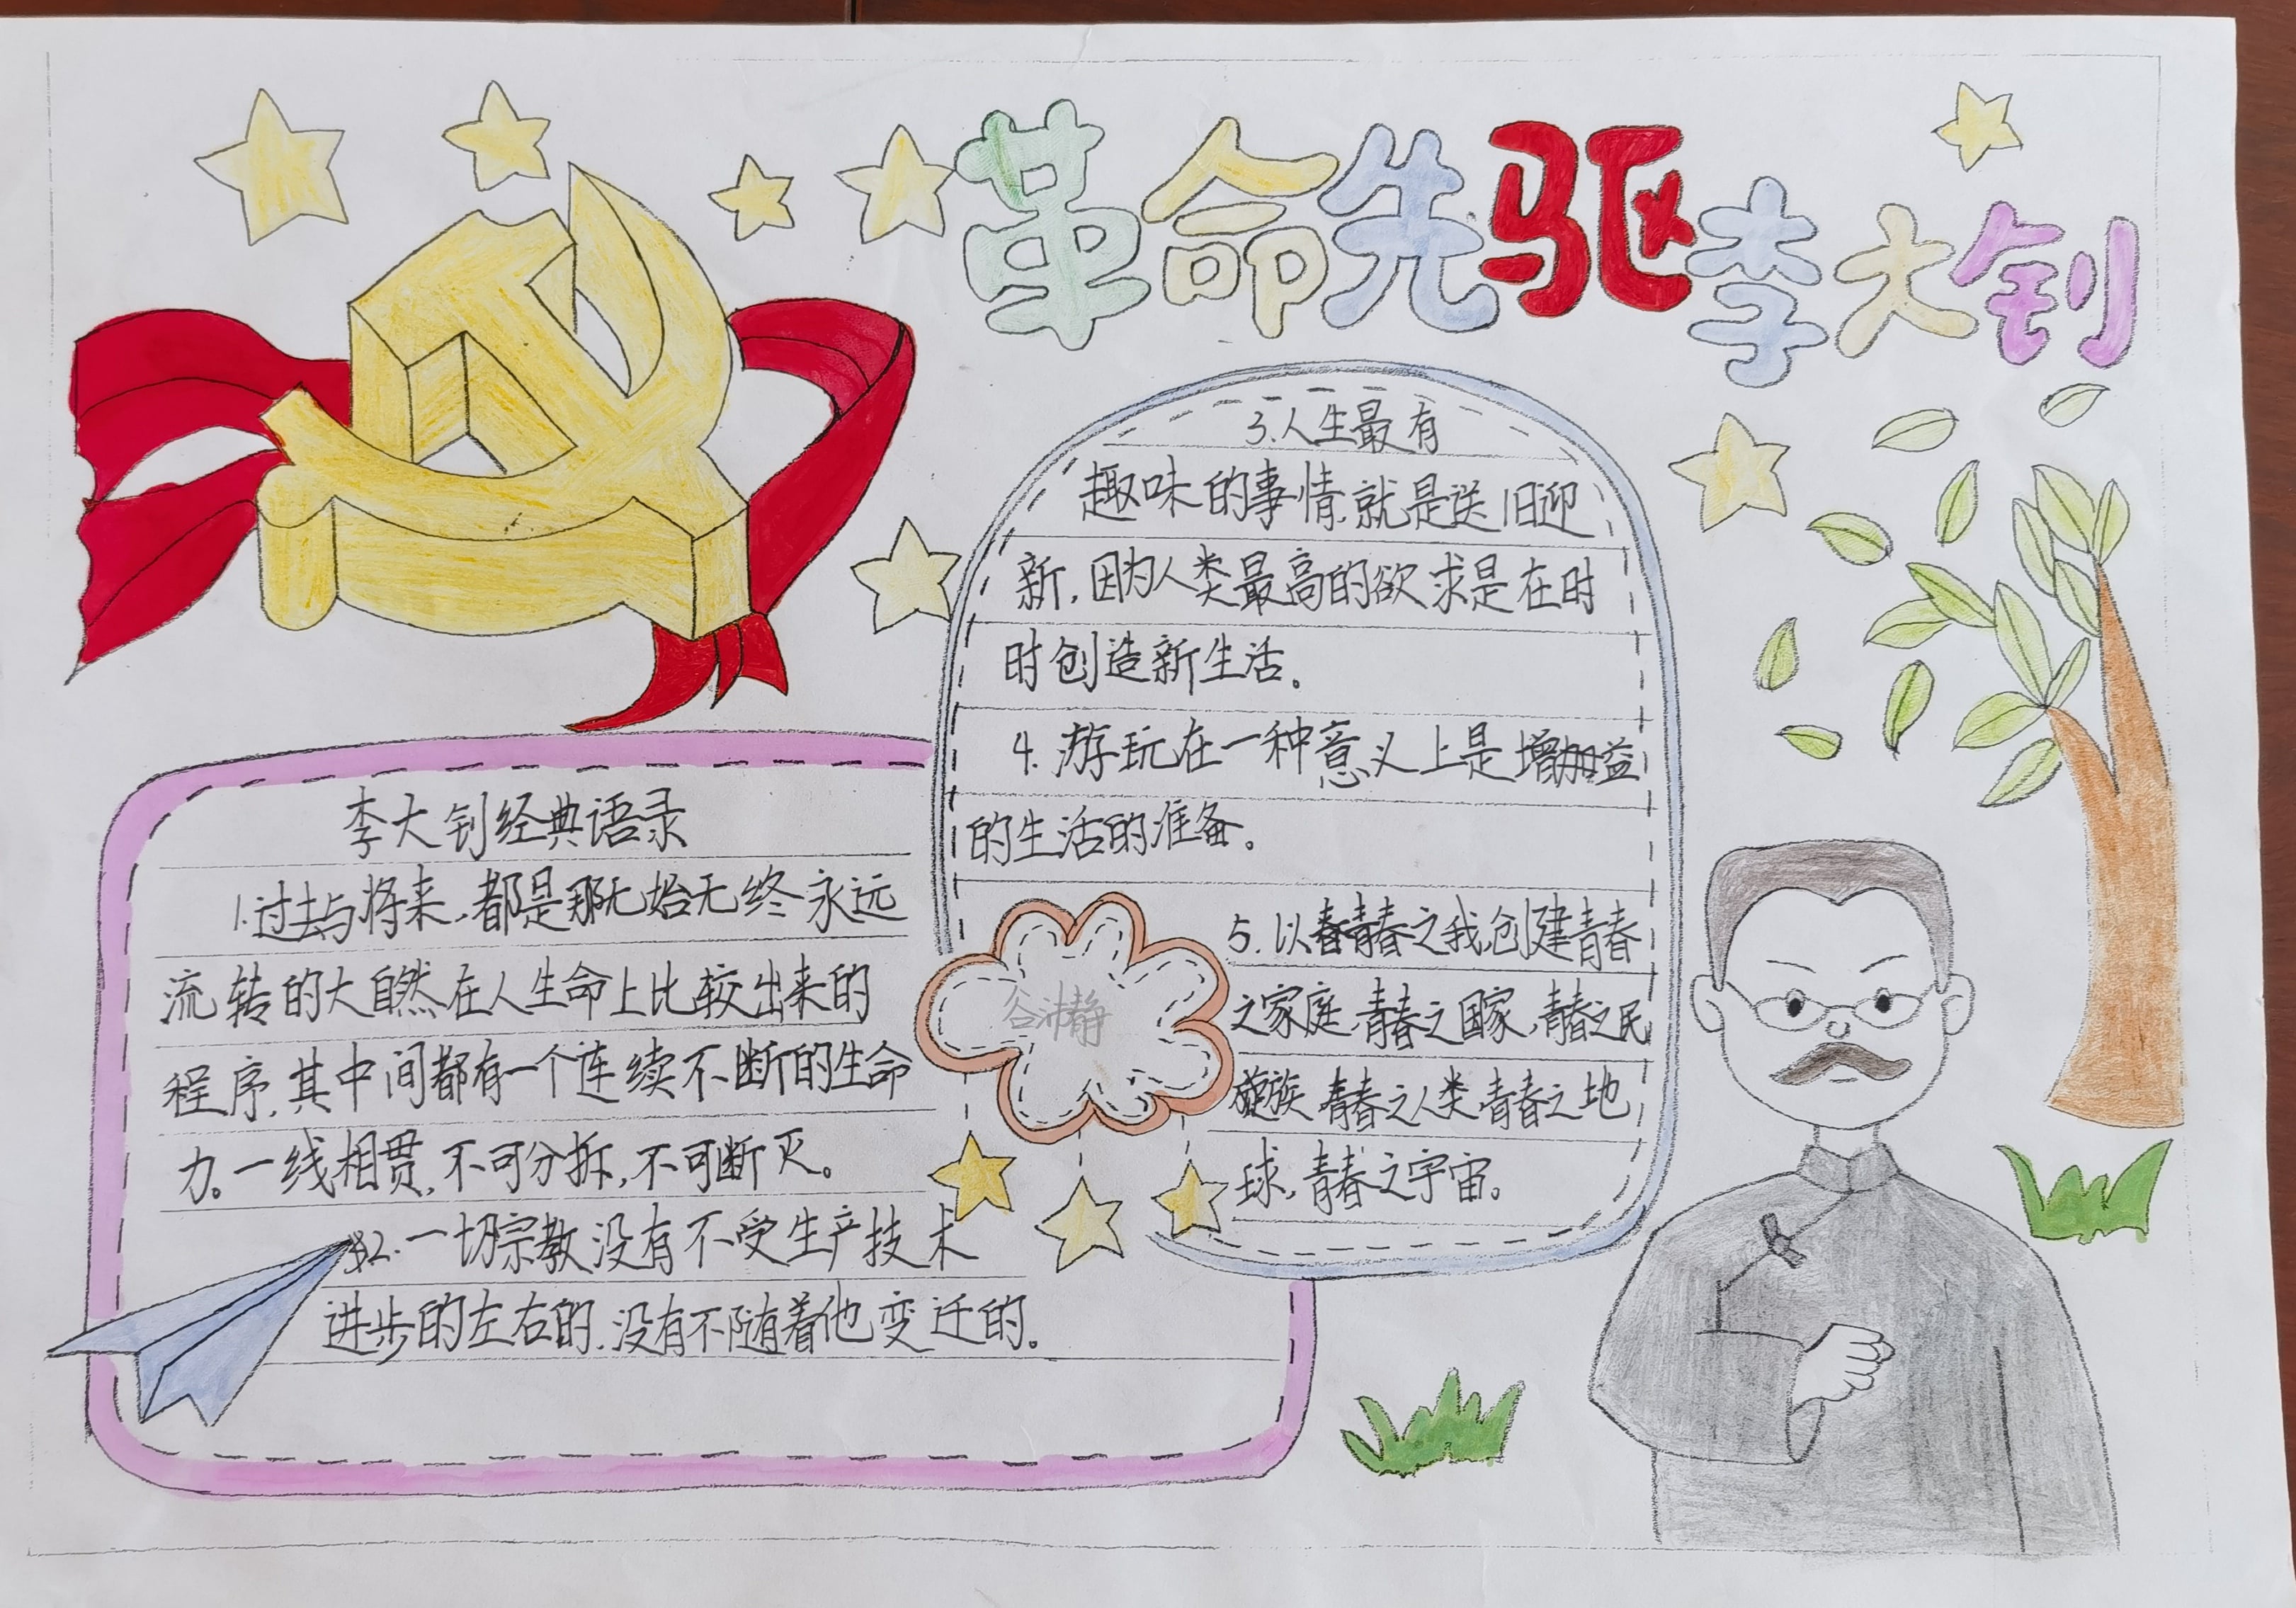 革命先驱李大钊
李大钊经典语录
1.过去与将来,都是那无始无终永远
流转的大自然在人生命上比较出来的
程序,其中间都有一个连续不断的生命
力。一线相贯,不可分拆,不可断灭。
2.一切宗教没有不受生产技术
进步的左右的,没有不随着他变迁的。
3.人生最有
趣味的事情,就是送旧迎
新,因为人类最高的欲求是在时
时创造新生活。
4.游玩在一种意义上是增加益
的生活的准备。
5.以青春之我,创建青春
之家庭,青春之国家,青春之民
族,青春之人类,青春之地
球,青春之宇宙。